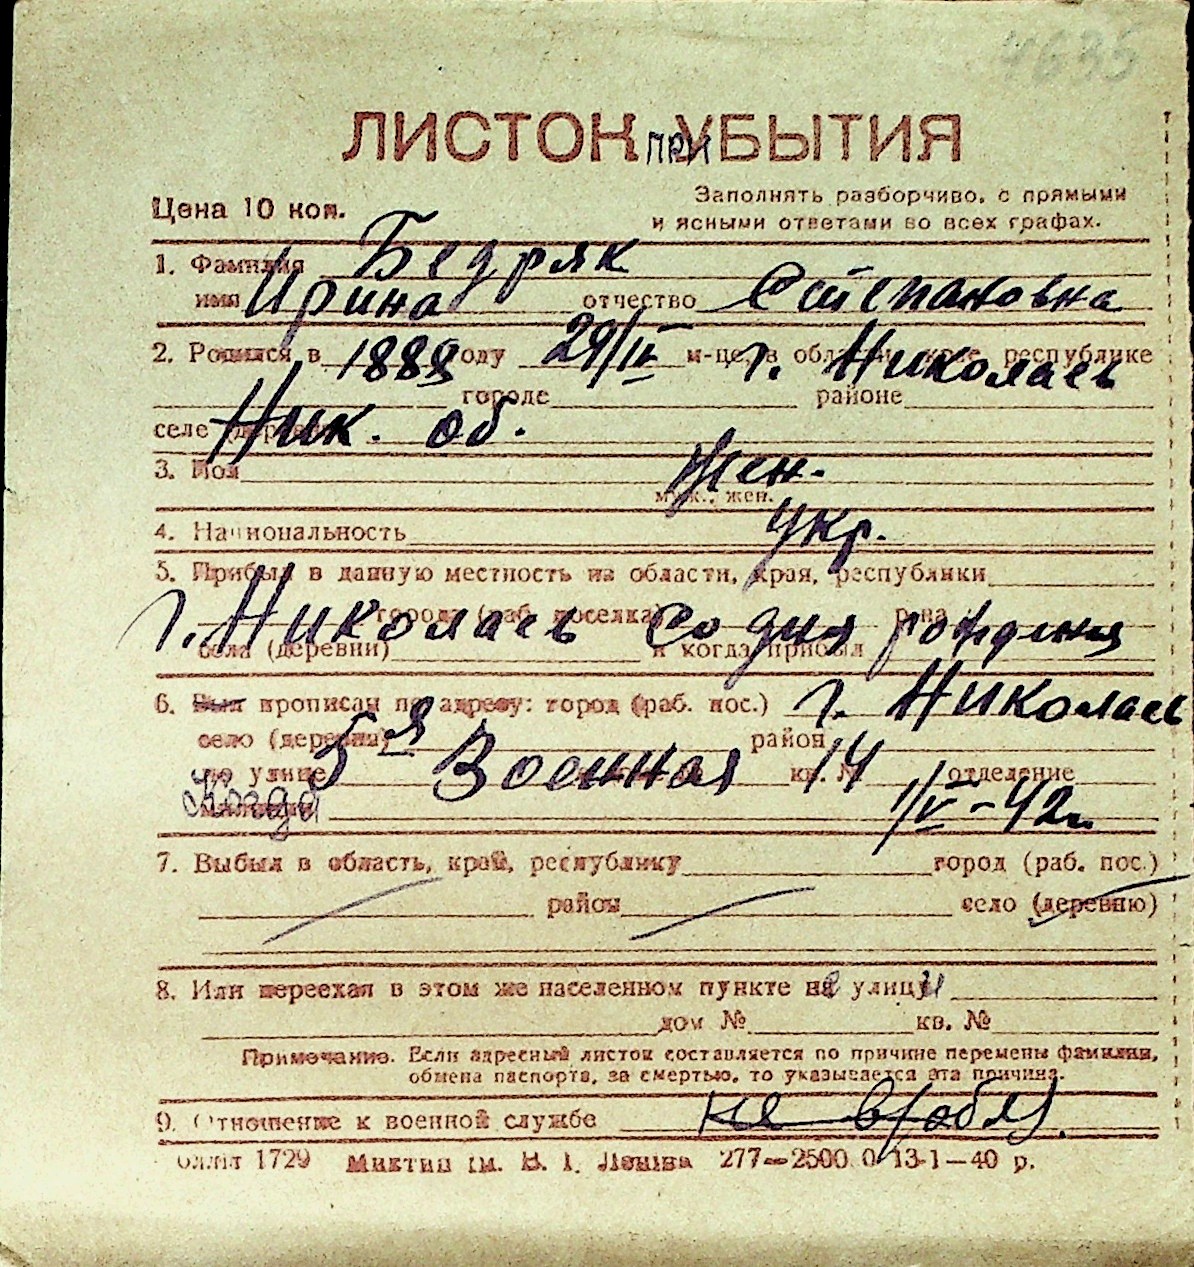 4635
ЛИСТОК ПРИ УБЫТИЯ
Цена 10 коп.
Заполнять разборчиво, с прямыми
и ясными ответами во всех графах.
1. Фамилия Бедряк
имя Ирина отчество Степановна
2. Родился в 1889 году 29/IV м-це, в области, крае, республике г. Николаев
городе районе
селе (деревне) Ник. об.
3. Пол Жен.
муж., жен.
4. Национальность Укр.
5. Прибыл в данную местность из области, края, республики
города (раб. поселка) р-на
г. Николаев со дня рождения
села (деревни) и когда прибыл
6. Был прописан по адресу: город (раб. пос.) г. Николаев
село (деревня) район
по улице 5я Военная кв. № 14 отделение
Когда милиции 1/V-42 г.
7. Выбыл в область, край, республику город (раб. пос.)
район село (деревню)
8. Или переехал в этом же населенном пункте на улицу
дом № кв. №
Примечание. Если адресный листок составляется по причине перемены фамилии,
обмена паспорта, за смертью, то указывается эта причина.
9. Отношение к военной службе не в/обяз.
1729 им. В. И. Ленина 277—2500 0 13-1—40 р.